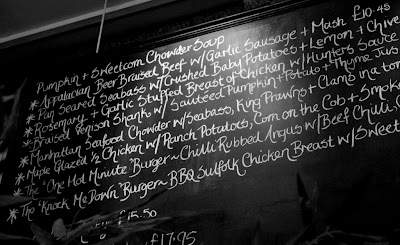 Pumpkin + Sweetcorn Chowder Soup
* Appalacian Beer Braised Beef w/ Garlic Sausage + Mash £10.45
* Pan Seared Seabass w/ Crushed Baby Potatoes + Lemon + Chive
* Rosemary + Garlic Stuffed Breast of Chicken w/ Hunters Sauce
* Braised Venison Shank w/ Sauteed Pumpkin + Potato + Thyme Jus
* Manhattan Seafood Chowder w/ Seabass, King Prawns + Clams in a tom
* Maple Glazed ½ Chicken w/ Ranch Potatoes, Corn on the Cob + Smoke
* The 'One Hot Minute' Burger ~ Chilli Rubbed Angus w/ Beef Chilli, C
* The 'Knock Me Down' Burger ~ BBQ Suffolk Chicken Breast w/ Sweet
£15.50
£17.95